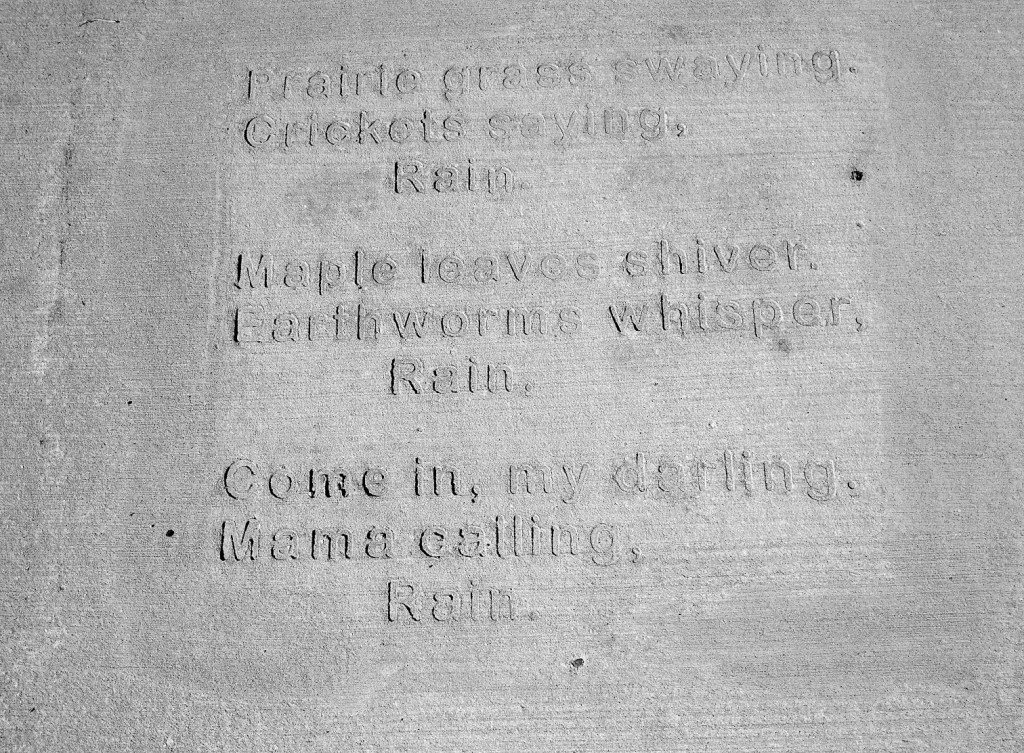 Prairie grass swaying.
Crickets saying,
Rain.
Maple leaves shiver.
Earthworms whisper,
Rain.
Come in, my darling.
Mama calling,
Rain.